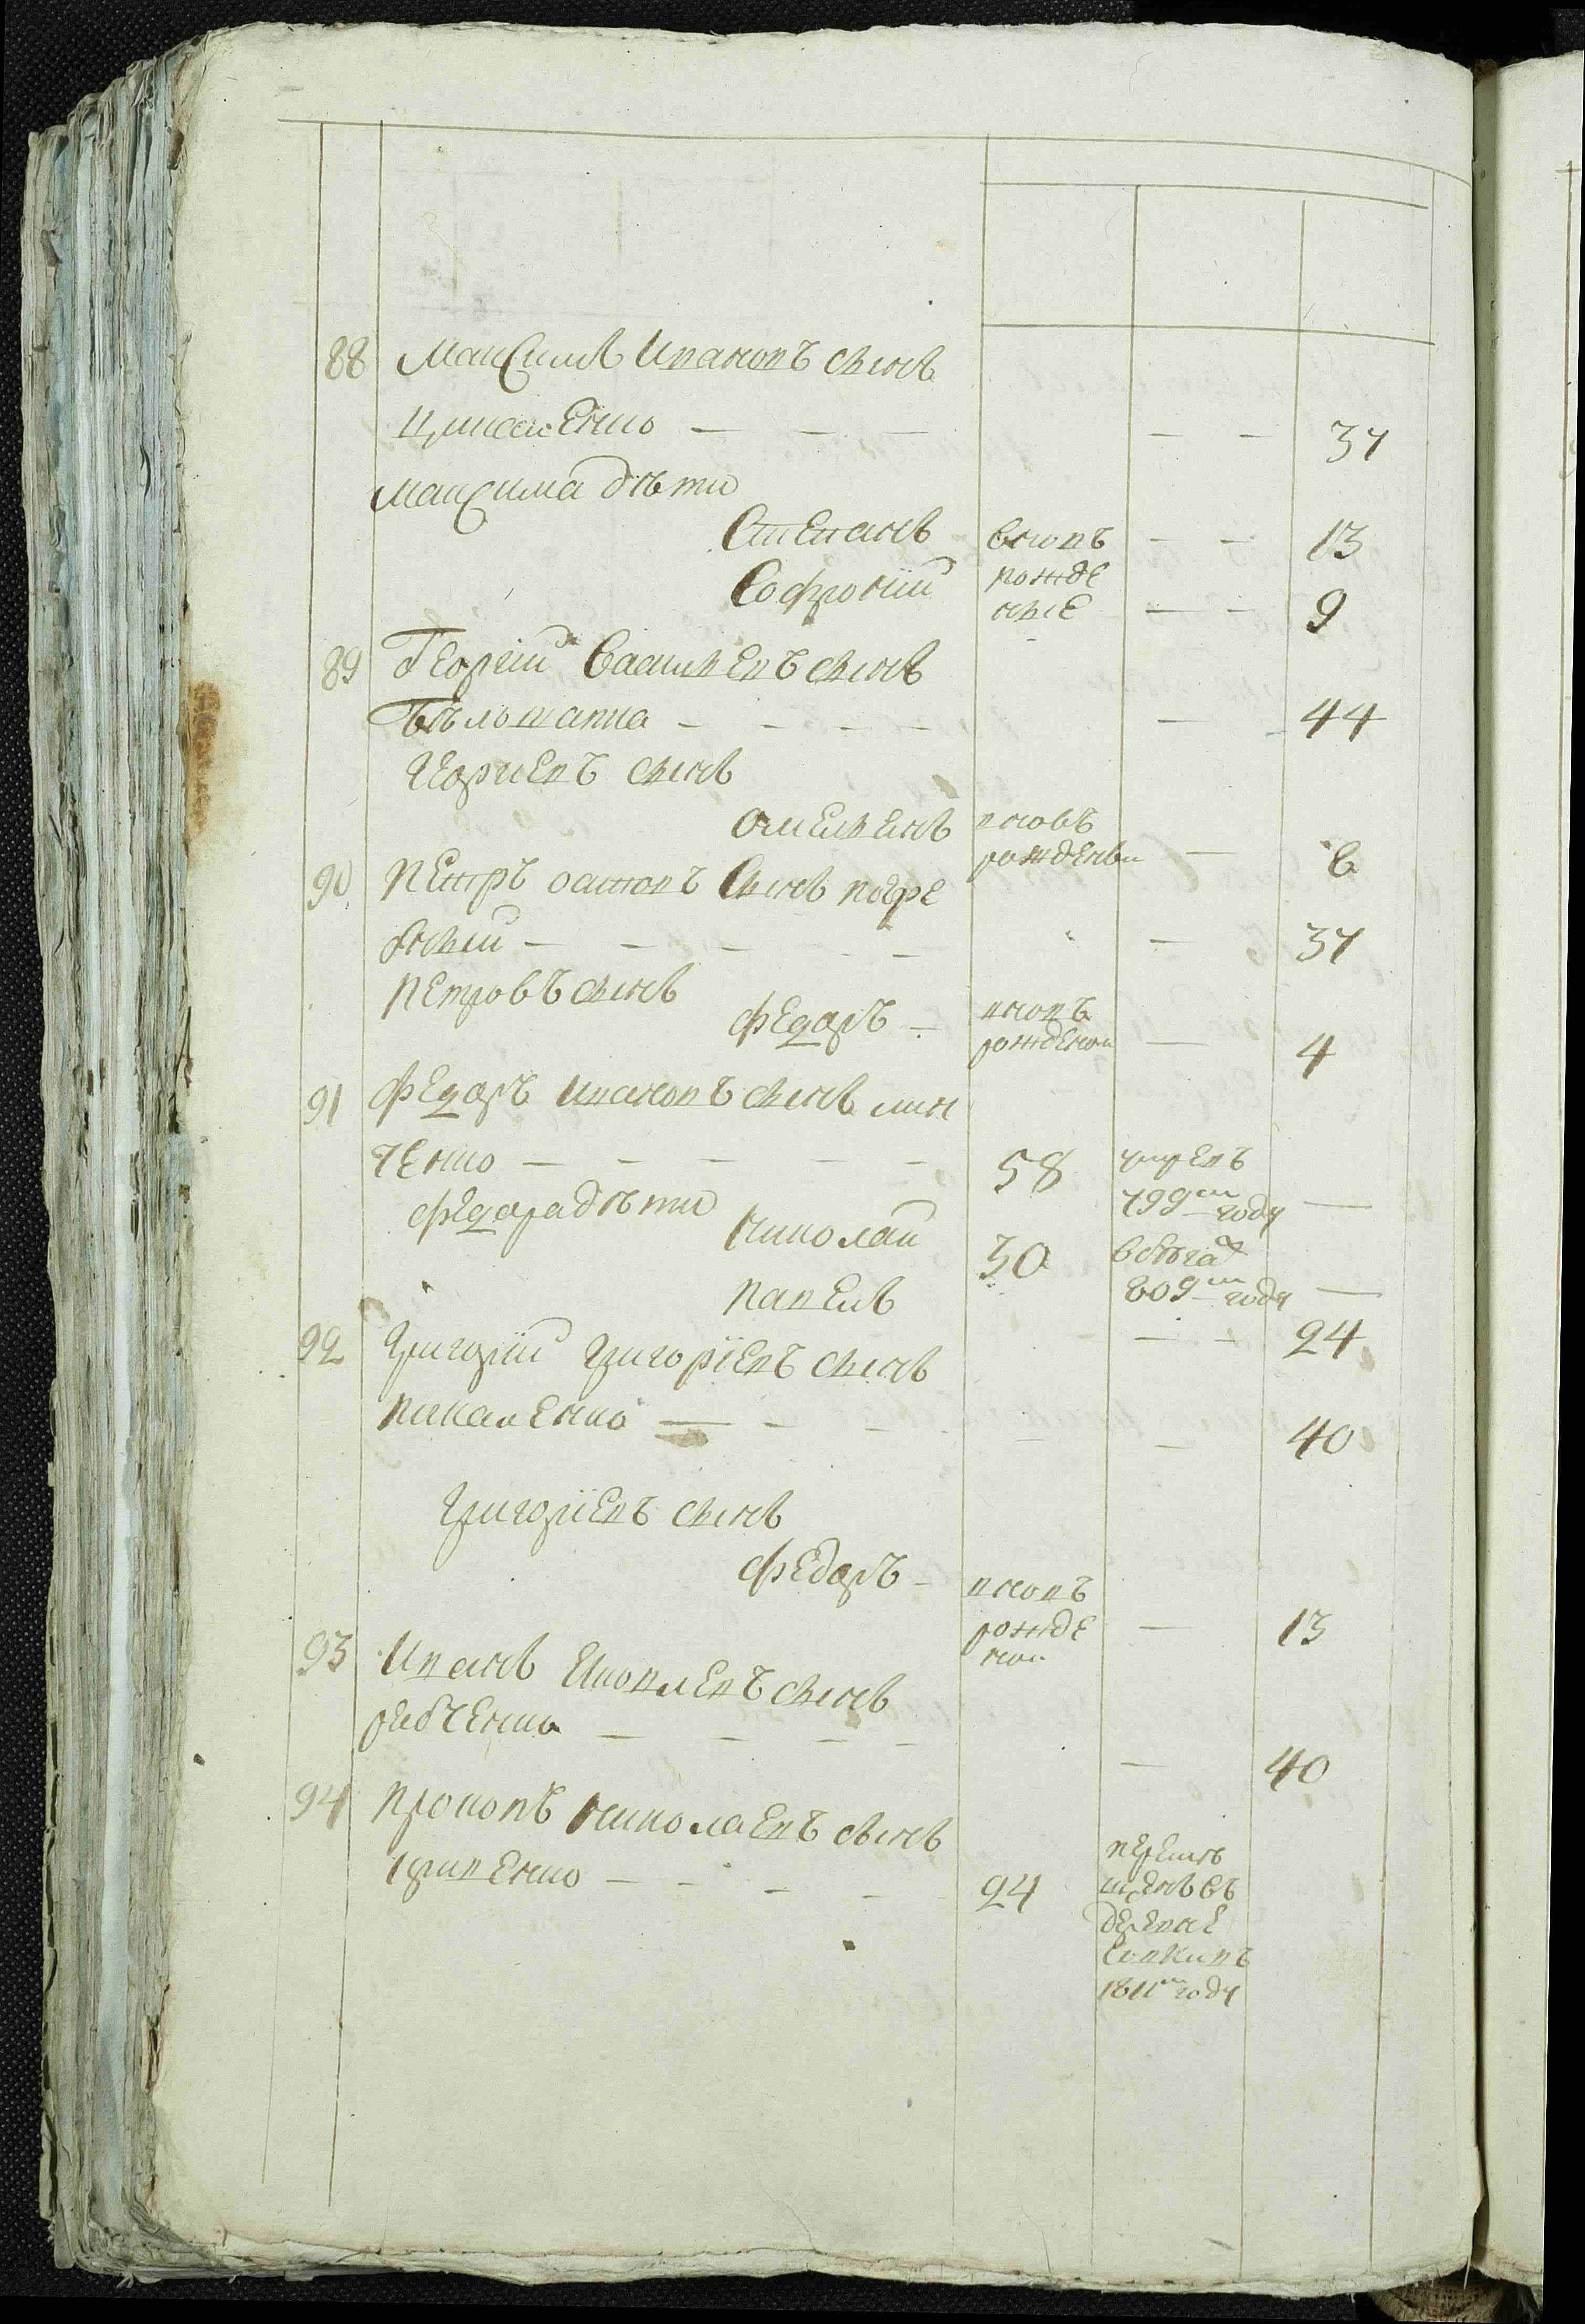 88 Максимъ Ивановъ сынъ
37
Максима дѣти
Степанъ вновь 13
Софроній рожде
ные 9
89 Георгій Васильевъ сынъ
44
Георгіевъ сынъ
Омельянъ вновь
рожденъи 6
90 Петръ остаповъ Сынъ погре
бный 37
Петровъ сынъ
Федоръ вновь
рожденои 4
91 Федоръ Ивановъ сынъ мин
ченко 58 умръ въ
799м году
Федора дѣти
Николай 30 в бѣгах
809м году
Павелъ 24
92 Григорій Григоріевъ сынъ
40
Григоріевъ сынъ
Федоръ вновь
рожде 13
нои
93 Иванъ Яковлевъ сынъ
рябченко 40
94 Прокопъ Николаевъ сынъ
гриценко 24 перемѣ
щенъ въ
деревне
1811м году